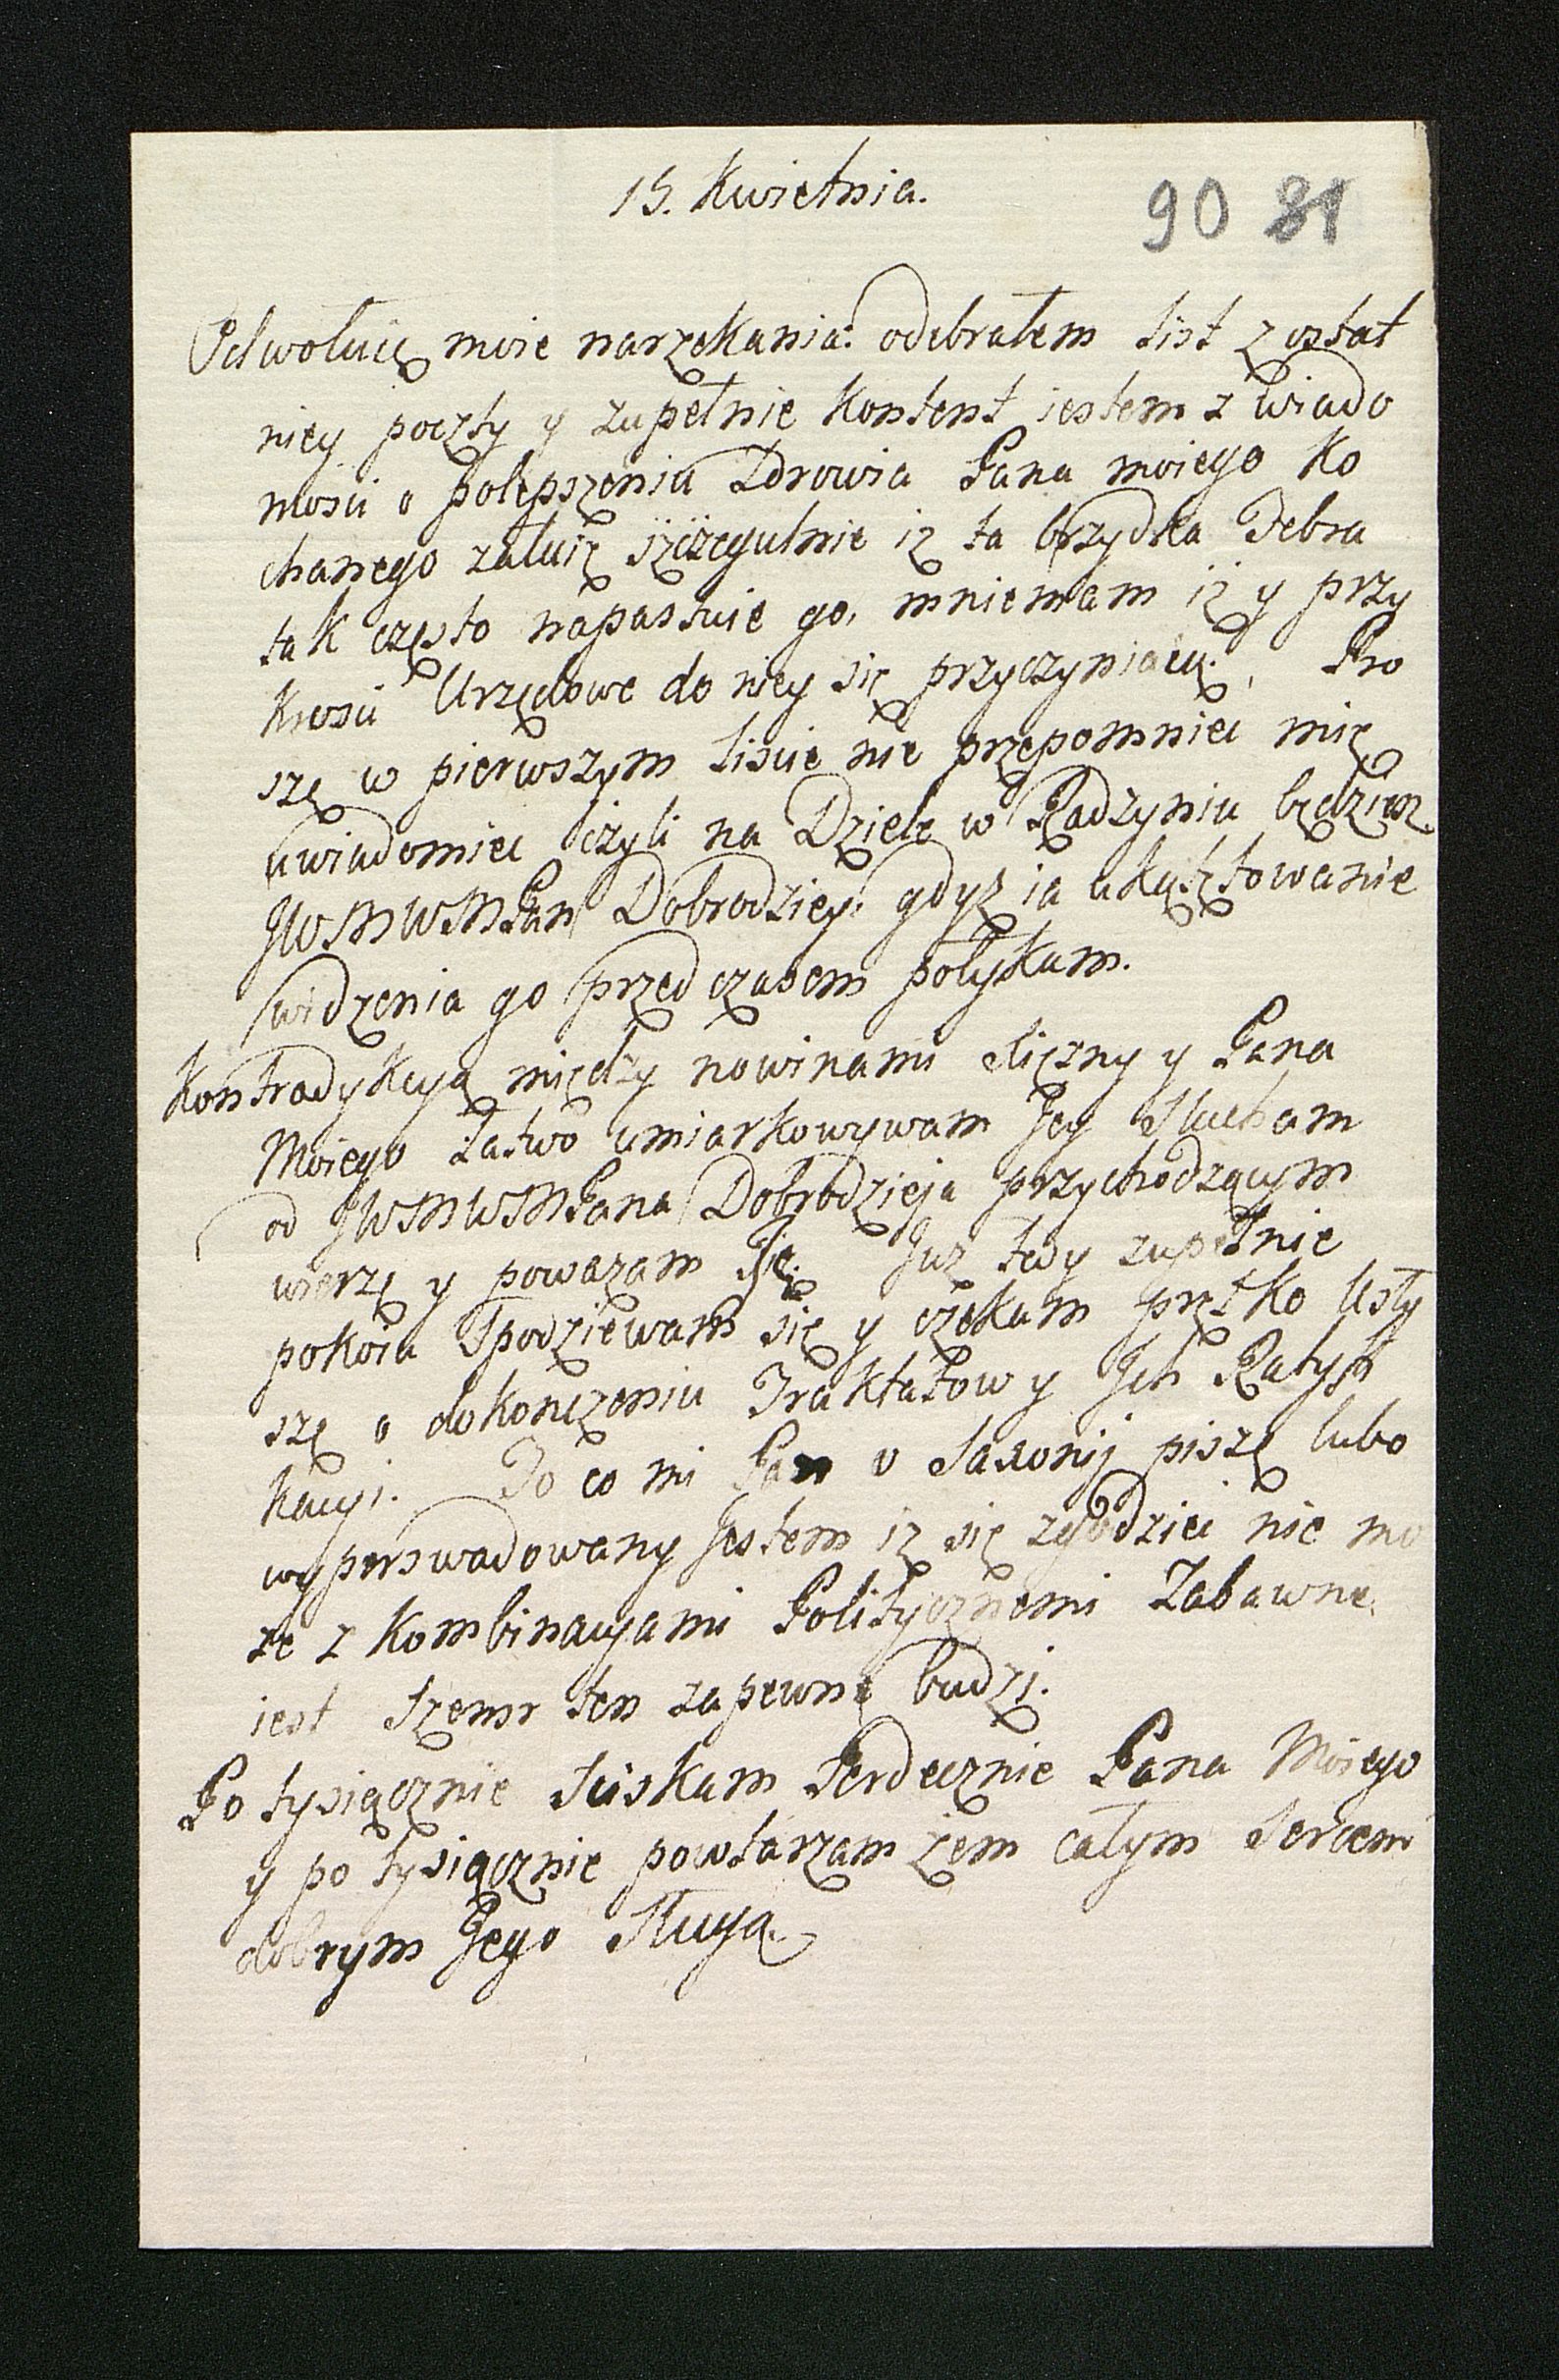 15. Kwietnia.
90 81
Odwołuię moie narzekania: odebrałem list z ostat
niey poczty y zupełnie kontent iestem z wiado
mosci o polepszeniu Zdrowia Pana moiego ko
chanego załuię szczegulnie iz ta brzydka Febra
tak często napastuie go, mniemam iz y przy
krosci Urzędowe do niey się przyczyniaią. Pro
szę w pierwszym liscie nie przepomniec mię
uwiadomic czyli na Dziele w Radzyniu będziesz
JWSMWSMPan Dobrodziey: gdyz ia ukąsztowanie
widzenia go przed czasem połykam.
Kontradykcyą między nowinami sliczny y Pana
Moiego Łatwo umiarkowywam Jey Słucham
od JWSMWSMPana Dobrodzieja przychodzącym
wierzę y powazam Je. Juz tedy zupełnie
pokoia Spodziewam się y czekam prętko Usły
szę o dokonczeniu Traktatow y Jch Ratyfi
kacyi. To co mi Pan o Saxonij piszę lubo
wyperswadowany Jestem iz się zgodzic nie mo
ze z Kombinacyami Politycznemi Zabawne
iest Szemr ten zapewne budzi.
Po tysiącznie Sciskam Serdecznie Pana Moiego
y po tysiącznie powtarzam żem całym Sercem
dobrym Jego Sługą